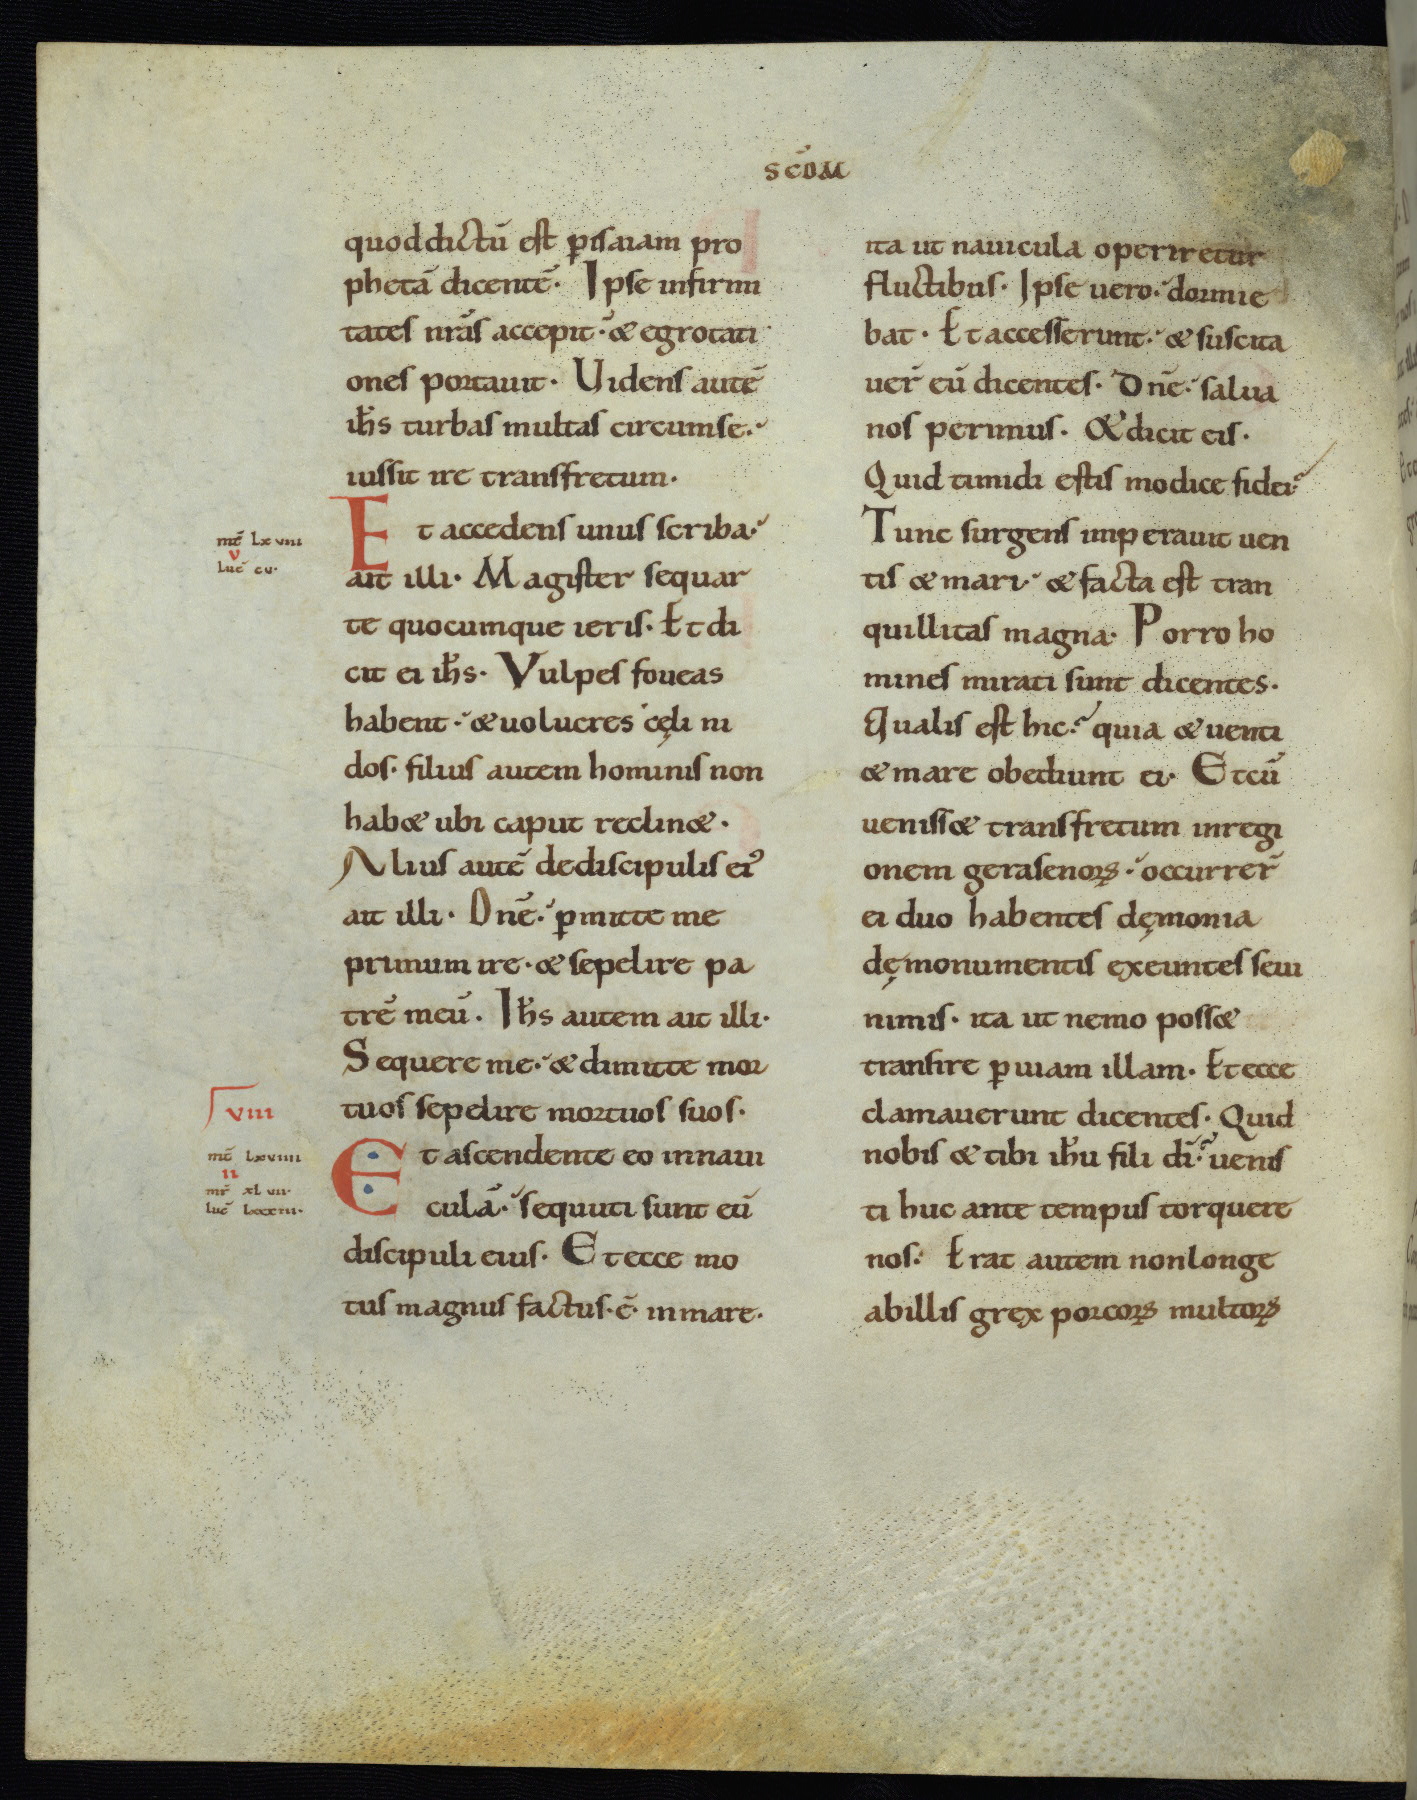 scd̄M
quoddictū est ꝑisaiam pro
phetā dicentē· Ipse infirmi
tates nr̄as accepit· & egrotati
ones portauit· Uidens autē
ih̄s turbas multas circumse·
iussit ire transfretum·
mt̄ Lxviii
v
luc̄ cv·
Et accedens unus scriba·
ait illi· Magister sequar
te quocumque ieris· Et di
cit ei ih̄s· Vulpes foueas
habent· & uolucres cęli ni
dos· filius autem hominis non
hab& ubi caput reclin&·
Alius autē dediscipulis ei᾽
ait illi· Dn̄e· ꝑmitte me
primum ire· & sepelire pa
trē meū· Ih̄s autem ait illi·
Sequere me· & dimitte mor
tuos sepelire mortuos suos·
viii
mt̄ Lxviiii
ii
mr̄ xLvii·
luc̄ Lxxxiii·
Et ascendente eo innaui
culā· sequuti sunt eū
discipuli eius· Et ecce mo
tus magnus factus· ē· inmare·
ita ut nauicula operiretur
fluctibus· Ipse uero· dormie
bat· Et accesserunt· & suscita
uer̄ eū dicentes· Dn̄e· salua
nos perimus· & dicit eis·
Quid timidi estis modice fidei?
Tunc surgens imperauit uen
tis & mari· & facta est tran
quillitas magna· Porro ho
mines mirati sunt dicentes·
Qualis est hic? quia & uenti
& mare obediunt ei· Et cū
ueniss& transfretum inregi
onem gerasenoꝝ· occurrer̄
ei duo habentes dęmonia
dę monumentis exeuntes seui
nimis· ita ut nemo poss&
transire ꝑuiam illam· Et ecce
clamauerunt dicentes· Quid
nobis & tibi ih̄u fili dī? uenis
ti huc ante tempus torquere
nos· Erat autem nonlonge
abillis grex porcoꝝ multoꝝ